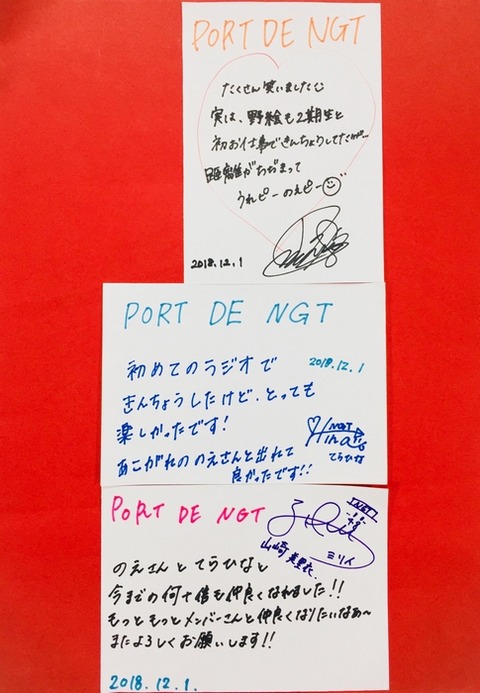 PORT DE NGT
たくさん笑いました
実は、野絵も2期生と
初お仕事できんちょうしてたが…
距離がちぢまって
うれピーのえピー
2018.12.1
PORT DE NGT
2018.12.1
初めてのラジオで
きんちょうしたけど、とっても
楽しかったです!
あこがれののえさんと出れて
良かったです!!
NGT
Hina
てらひな
PORT DE NGT
NGT
山崎美里衣
ミリイ
のえさんとてらひなと
今までの何十倍も仲良くなれました!!
もっともっとメンバーさんと仲良くなりたいなあ〜
またよろしくお願いします!!
2018.12.1.